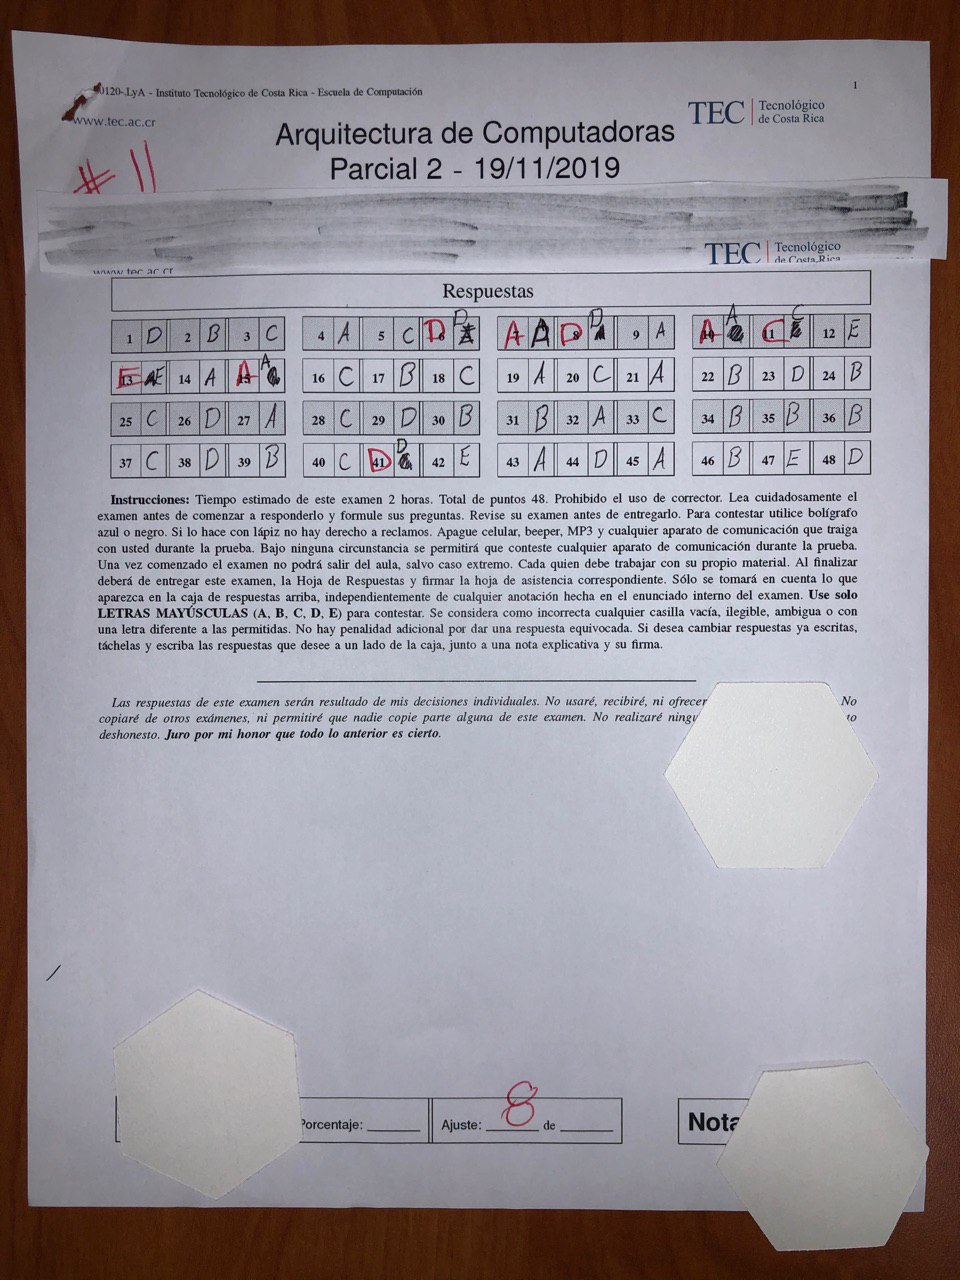 0120-.LyA - Instituto Tecnológico de Costa Rica - Escuela de Computación
1
www.tec.ac.cr
TEC Tecnológico
de Costa Rica
Arquitectura de Computadoras
Parcial 2 - 19/11/2019
# 11
TEC Tecnológico
de Costa Rica
www.tec.ac.cr
Respuestas
1 D 2 B 3 C 4 A 5 C D D 7 A D 8 D D 9 A 10 A A 11 C C 12 E
13 E E 14 A 15 A A 16 C 17 B 18 C 19 A 20 C 21 A 22 B 23 D 24 B
25 C 26 D 27 A 28 C 29 D 30 B 31 B 32 A 33 C 34 B 35 B 36 B
37 C 38 D 39 B 40 C 41 D D 42 E 43 A 44 D 45 A 46 B 47 E 48 D
Instrucciones: Tiempo estimado de este examen 2 horas. Total de puntos 48. Prohibido el uso de corrector. Lea cuidadosamente el
examen antes de comenzar a responderlo y formule sus preguntas. Revise su examen antes de entregarlo. Para contestar utilice bolígrafo
azul o negro. Si lo hace con lápiz no hay derecho a reclamos. Apague celular, beeper, MP3 y cualquier aparato de comunicación que traiga
con usted durante la prueba. Bajo ninguna circunstancia se permitirá que conteste cualquier aparato de comunicación durante la prueba.
Una vez comenzado el examen no podrá salir del aula, salvo caso extremo. Cada quien debe trabajar con su propio material. Al finalizar
deberá de entregar este examen, la Hoja de Respuestas y firmar la hoja de asistencia correspondiente. Sólo se tomará en cuenta lo que
aparezca en la caja de respuestas arriba, independientemente de cualquier anotación hecha en el enunciado interno del examen. Use solo
LETRAS MAYÚSCULAS (A, B, C, D, E) para contestar. Se considera como incorrecta cualquier casilla vacía, ilegible, ambigua o con
una letra diferente a las permitidas. No hay penalidad adicional por dar una respuesta equivocada. Si desea cambiar respuestas ya escritas,
táchelas y escriba las respuestas que desee a un lado de la caja, junto a una nota explicativa y su firma.
Las respuestas de este examen serán resultado de mis decisiones individuales. No usaré, recibiré, ni ofrecer No
copiaré de otros exámenes, ni permitiré que nadie copie parte alguna de este examen. No realizaré ningu to
deshonesto. Juro por mi honor que todo lo anterior es cierto.
Porcentaje: ______ Ajuste: 8 de ______ Nota